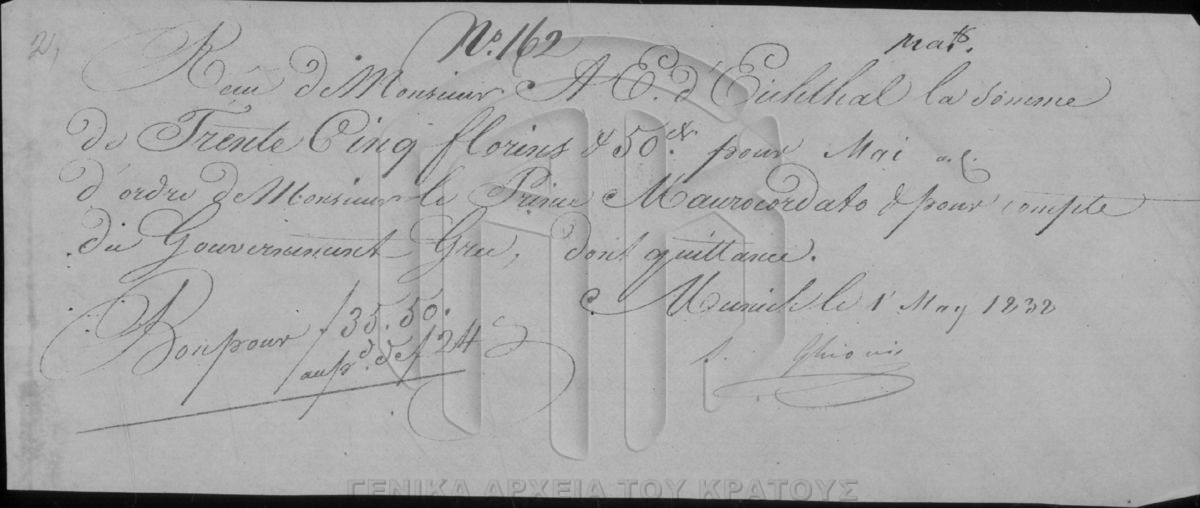 2,
No. 162
Reçu de Monsieur A E. d'Eichthal la somme
de Trente Cinq florins & 50 xr. pour Mai a.c.
d'ordre de Monsieur le Prince Maurocordato & pour compte
du Gouvernement Grec, dont quittance.
Munich le 1 May 1838
Bon pour f 35. 50.
au pd. de f 24
Ghionis
ΓΕΝΙΚΑ ΑΡΧΕΙΑ ΤΟΥ ΚΡΑΤΟΥΣ